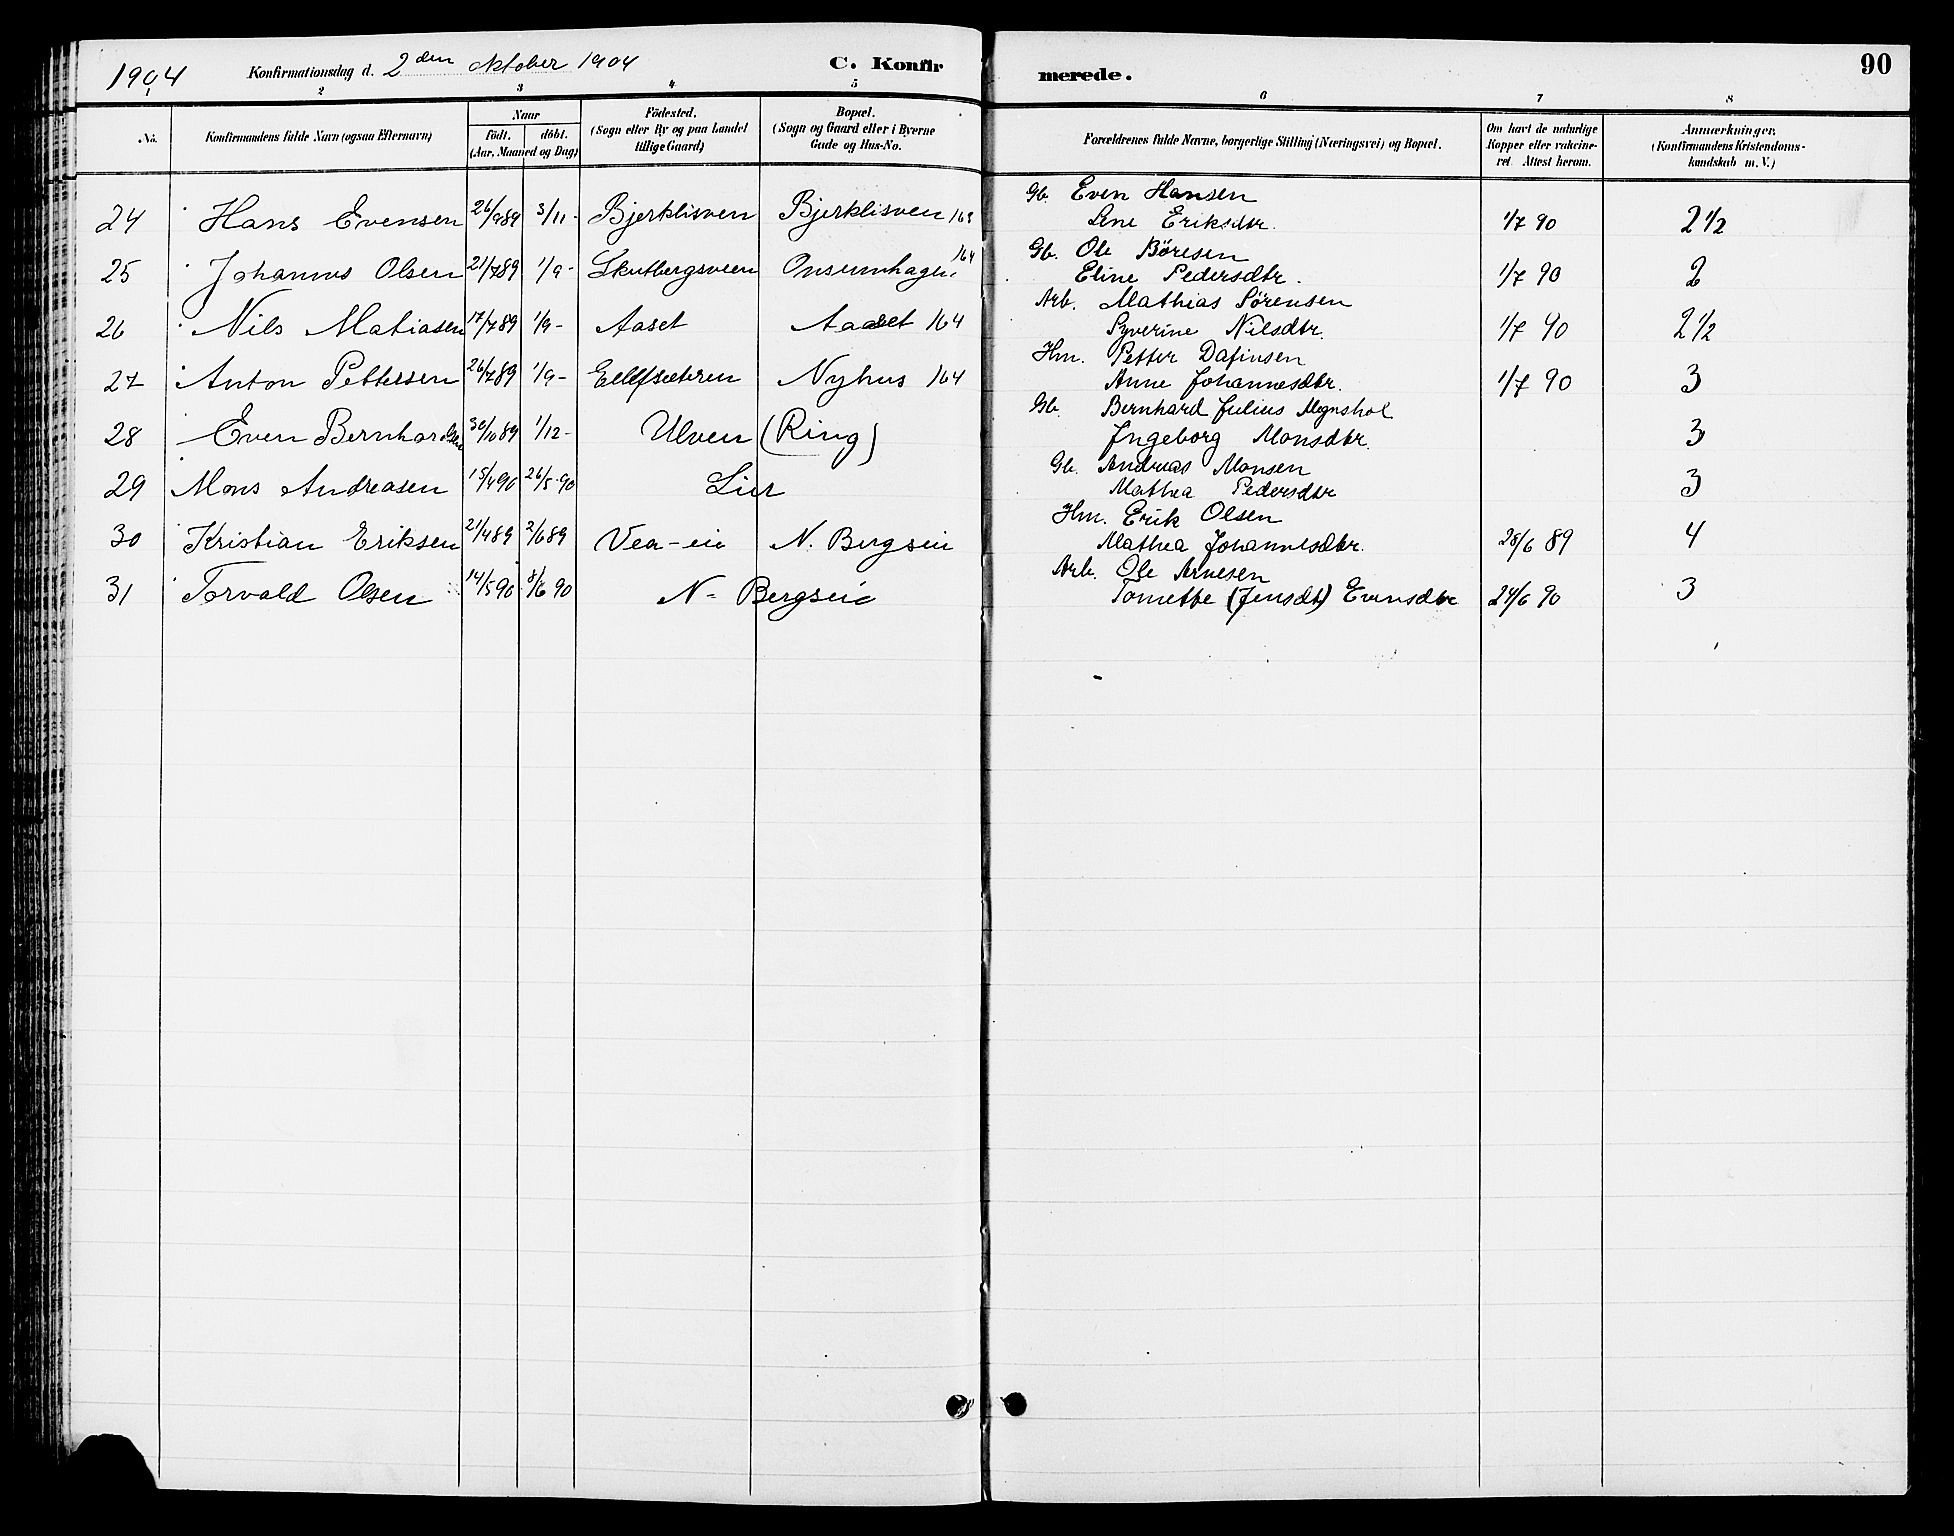 1904 Konfirmationsdag d. 2den Oktober 1904 C. Konfirmerede. 90
2 3 4 5 6 7 8
No. Konfirmandens fulde Navn (ogsaa Efternavn) Naar födt. döbt. (Aar, Maaned og Dag) Födested. (Sogn eller By og paa Landet tillige Gaard) Bopæl. (Sogn og Gaard eller i Byerne Gade og Hus-No. Forældrenes fulde Navne, borgerlige Stilling (Næringsvei) og Bopæl. Om havt de naturlige Kopper eller vakcineret. Attest herom. Anmærkninger. (Konfirmandens Kristendomskundskab m. V.)
24 Hans Evensen 26/9 89 3/11 - Bjerklisven Bjerklisven 163 Gb. Even Hansen
Lene Eriksdtr. 1/7 90 2 1/2
25 Johannes Olsen 21/7 89 1/9 - Skutbergsveen Onsumhagen 164 Gb. Ole Böresen
Eline Pedersdtr. 1/7 90 2
26 Nils Matiasen 17/7 89 1/9 - Aaset Aaset 164 Arb. Mathias Sörensen
Syverine Nilsdtr. 1/7 90 2 1/2
27 Anton Pettersen 26/7 89 1/9 - Nyhus 164 Hm. Petter Dafinsen
Anne Johannesdtr. 1/7 90 3
28 Even Bernhardsen 30/10 89 1/12 - Ulven (Ring) Gb. Bernhard Julius
Ingeborg Monsdtr. 3
29 Mons Andreasen 15/4 90 26/5 90 Lier Gb. Andreas Monsen
Mathea Pedersdtr 3
30 Kristian Eriksen 21/4 89 2/6 89 Vea-eie N. Bergseie Hm. Erik Olsen
Mathea Johannesdtr. 28/6 89 4
31 Torvald Olsen 14/5 90 8/6 90 N- Bergseie Arb. Ole Arnesen
Tomette (Jensdt) Evensdtr 24/6 90 3